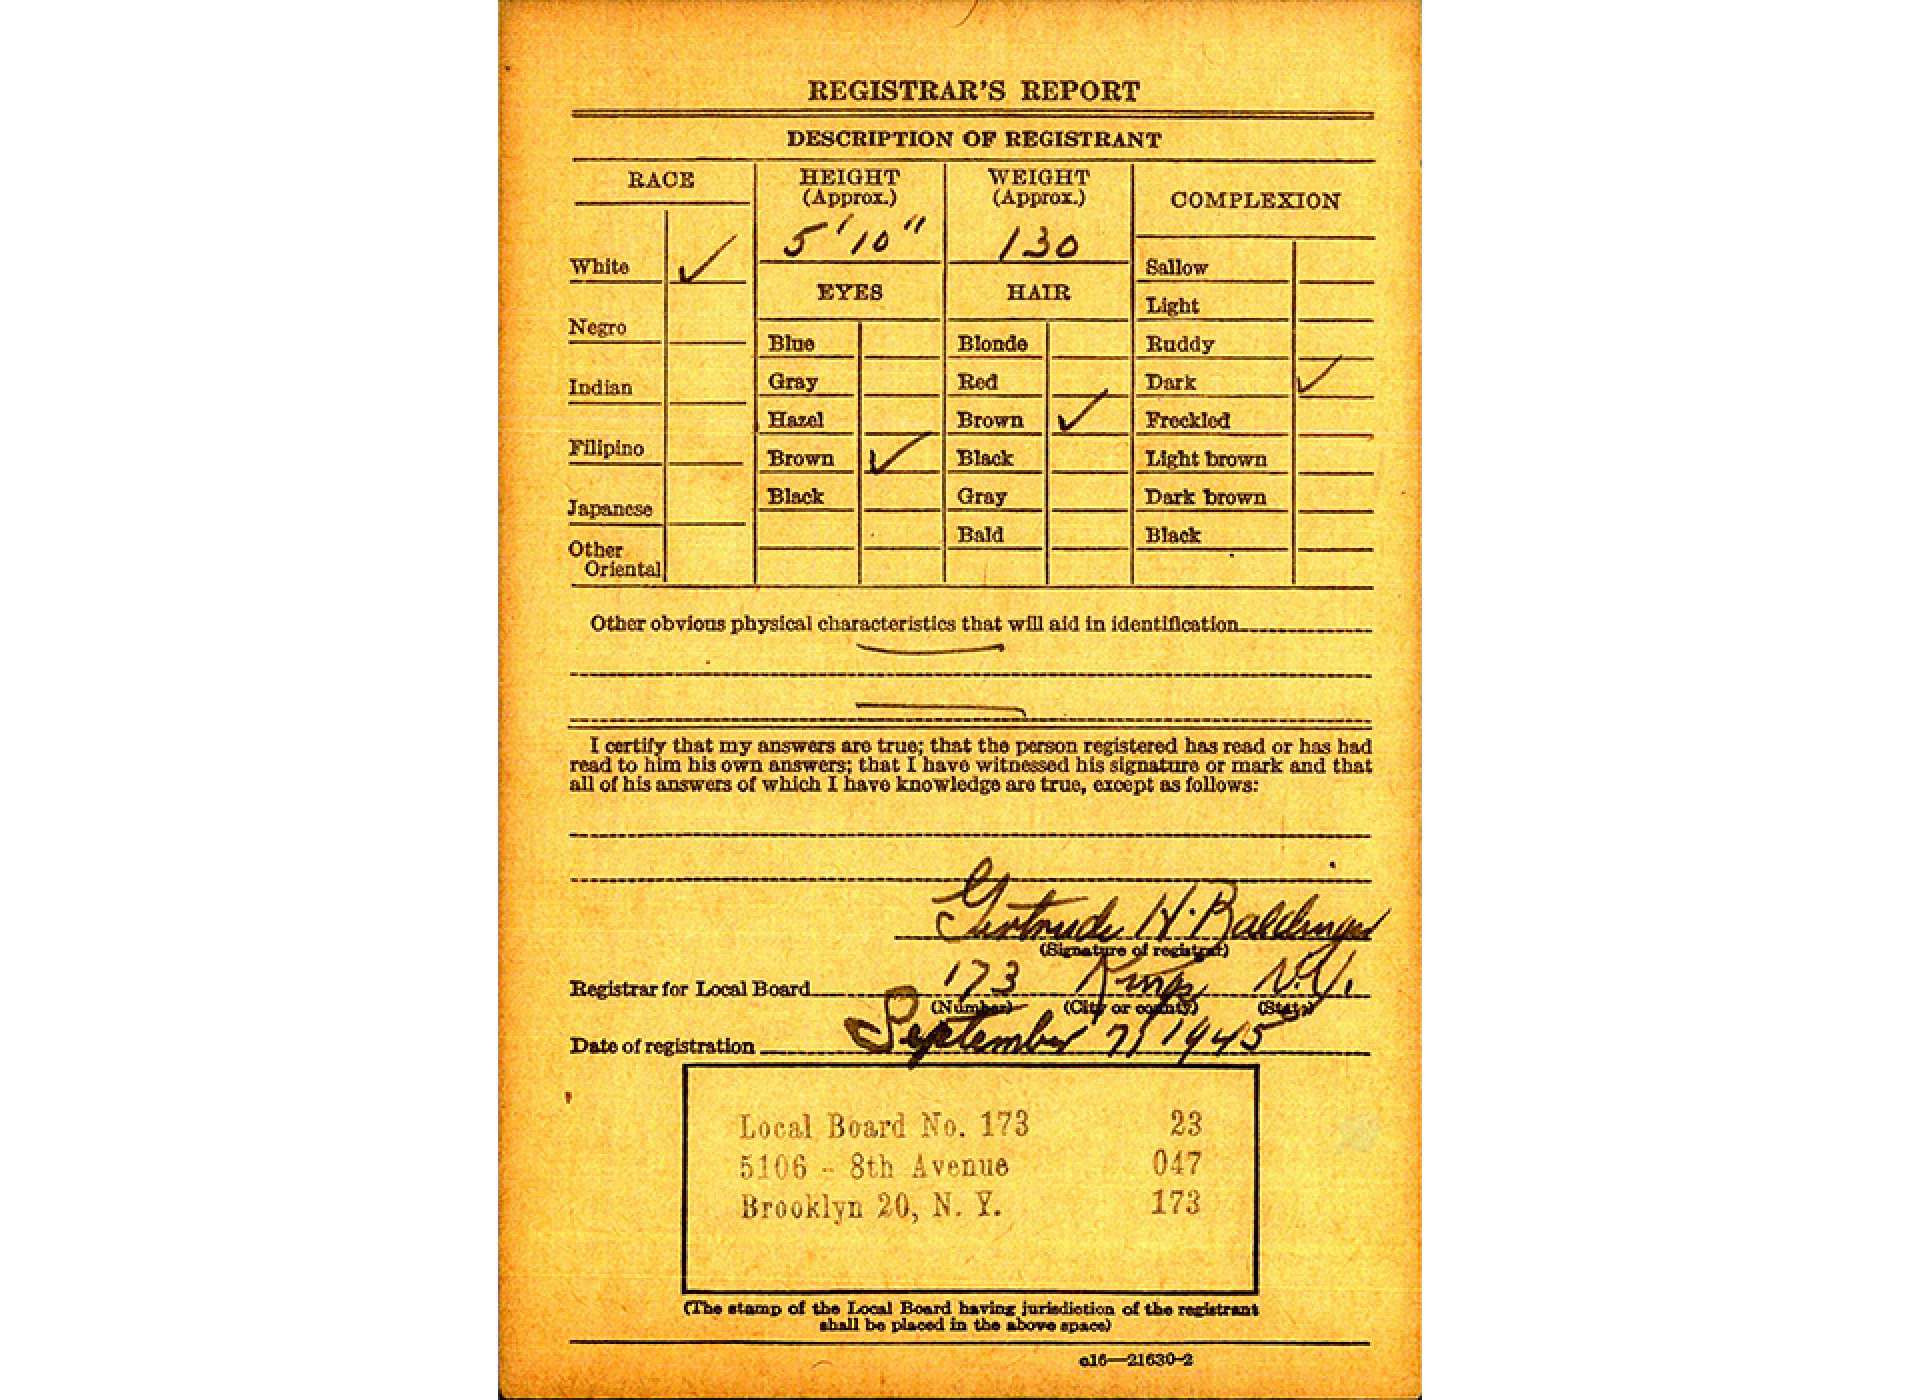 REGISTRAR'S REPORT
DESCRIPTION OF REGISTRANT
RACE
White ✓
Negro
Indian
Filipino
Japanese
Other
Oriental
HEIGHT
(Approx.)
5' 10"
EYES
Blue
Gray
Hazel
Brown ✓
Black
WEIGHT
(Approx.)
130
HAIR
Blonde
Red
Brown ✓
Black
Gray
Bald
COMPLEXION
Sallow
Light
Ruddy
Dark ✓
Freckled
Light brown
Dark brown
Black
Other obvious physical characteristics that will aid in identification
I certify that my answers are true; that the person registered has read or has had
read to him his own answers; that I have witnessed his signature or mark and that
all of his answers of which I have knowledge are true, except as follows:
Gertrude H. Baldinger
(Signature of registrar)
Registrar for Local Board 173 Kings N.Y.
(Number) (City or county) (State)
Date of registration September 7, 1945
Local Board No. 173 23
5106 - 8th Avenue 047
Brooklyn 20, N. Y. 173
(The stamp of the Local Board having jurisdiction of the registrant
shall be placed in the above space)
c16—21630-2